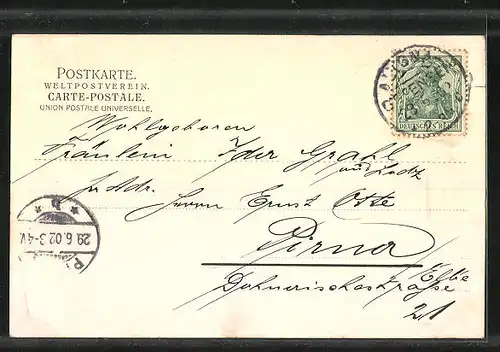 POSTKARTE.
WELTPOSTVEREIN.
CARTE-POSTALE.
UNION POSTALE UNIVERSELLE.
DEUTSCHES REICH
Wohlgeboren
Fräulein Ida Grahl
p. Adr. Herrn Ernst Otte
Pirna
Elbe
Dohnaischestraße
21
29.6.02.3-4V.